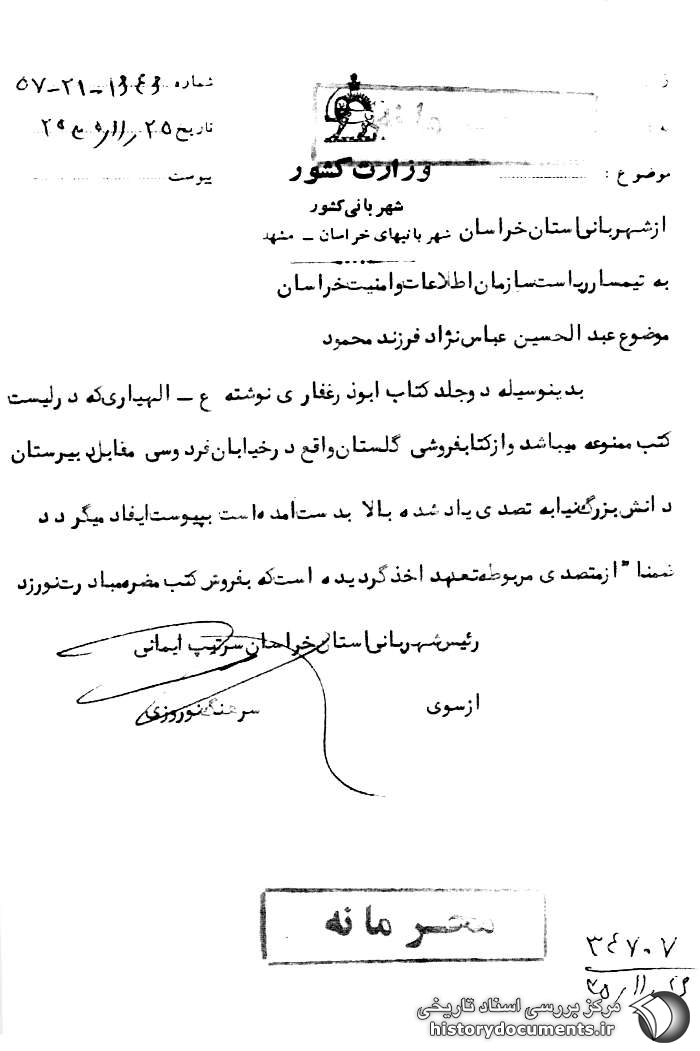 شماره ۵۷-۲۱-۱۶۴۶
تاریخ
پیوست
موضوع :
وزارت کشور
شهربانی کشور
شهربانیهای خراسان - مشهد
از شهربانی استان خراسان
به تیمسار ریاست سازمان اطلاعات و امنیت خراسان
موضوع عبدالحسین عباس نژاد فرزند محمود
بدینوسیله دو جلد کتاب ابوذرغفاری نوشته ع - الهیاری که در لیست
کتب ممنوعه میباشد و از کتابفروشی گلستان واقع در خیابان فردوسی مقابل دبیرستان
دانش بزرگ نیا به تصدی یاد شده بالا بدست آمده است بپیوست ایفاد میگردد
ضمنا" از متصدی مربوطه تعهد اخذ گردیده است که بفروش کتب مضره مبادرت نورزد
رئیس شهربانی استان خراسان سرتیپ ایمانی
از سوی سرهنگ نوروزی
محرمانه
۳۴۷۰۷
مرکز بررسی اسناد تاریخی
historydocuments.ir